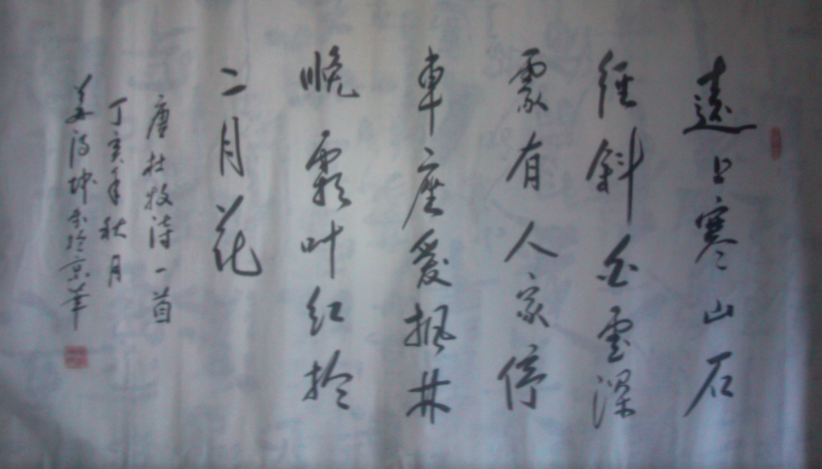 遠上寒山石
徑斜白雲深
處有人家停
車座愛楓林
晚霜叶红於
二月花
唐杜牧诗一首
丁亥年秋月
姜坤书於京華